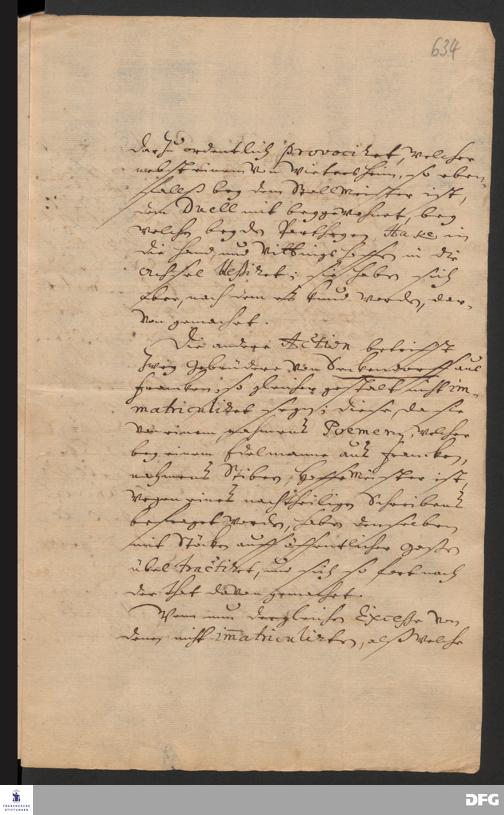 634
darzu ordentlich provociret, welcher
nebst einem von Wietersheim, so eben-
falls bey dem Stallmeister ist,
dem Duell mit beygewohnet, bey
welchem beyde Partheyen, Hake in
die Hand, und Vittinghoff in die
Achsel blessiret; sie haben sich
aber, nach dem es kund worden, dar-
von gemachet.
Die andere Action betrifft
zwey Gebrüdere von Seckendorff aus
Francken, so gleicher gestalt nicht im-
matriculiret seyn; diese, da sie
von einem nahmens Poemer, welcher
bey einem Edelmanne aus Francken,
nahmens Stiber, Hoffmeister ist,
wegen eines nachtheiligen Schreibens
befraget worden, haben denselben
mit Stöcken auff öffentlicher gassen
übel tractiret, und sich so fort nach
der that davon gemachet.
Wenn nun dergleichen Excesse von
denen nicht immatriculirten, als welche
FRANCKESCHE
STIFTUNGEN
DFG